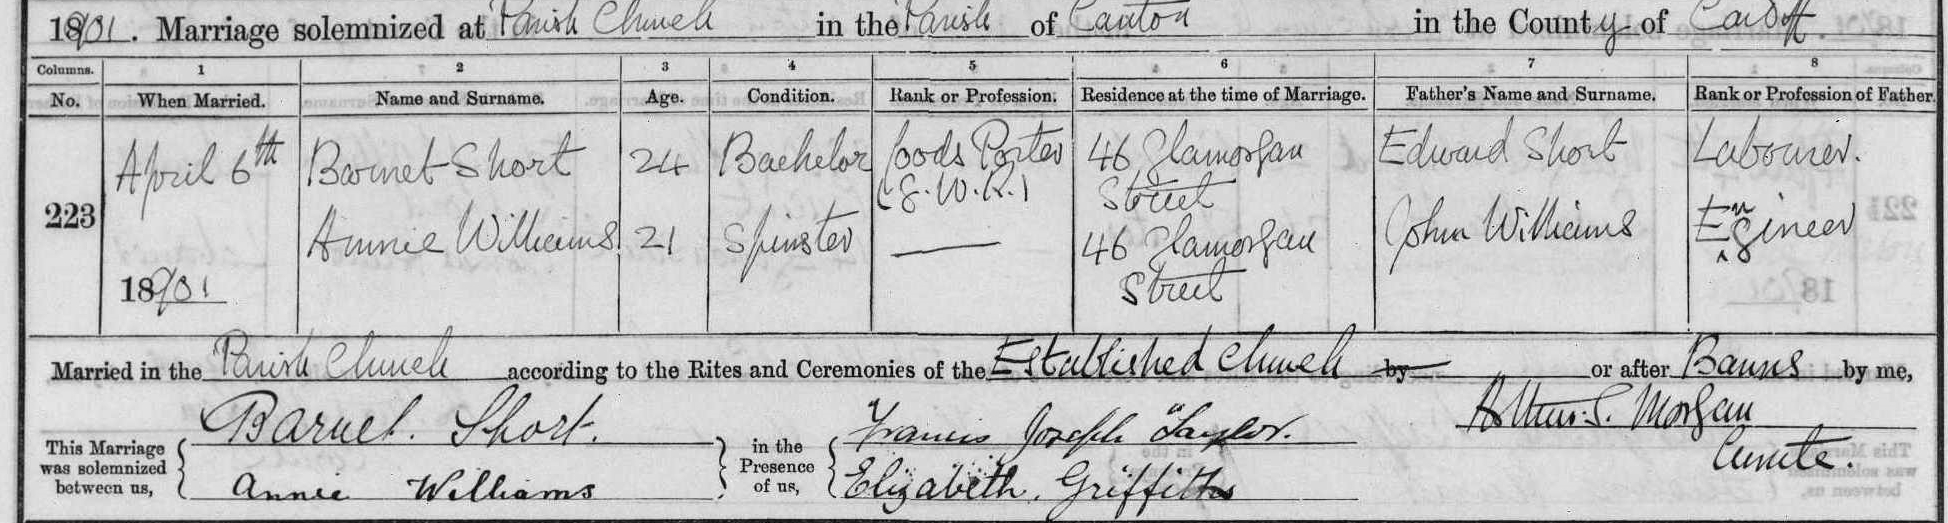 1901. Marriage solemnized at Parish Church in the Parish of Canton in the County of Cardiff
Columns. 1 2 3 4 5 6 7 8
No. When Married. Name and Surname. Age. Condition. Rank or Profession. Residence at the time of Marriage. Father's Name and Surname. Rank or Profession of Father.
223 April 6th Barnet Short 24 Bachelor Goods Porter (G.W.R.) 46 Glamorgan Street Edward Short Labourer.
Annie Williams 21 Spinster — 46 Glamorgan Street John Williams Engineer
1901
Married in the Parish Church according to the Rites and Ceremonies of the Established Church by or after Banns by me,
Arthur S. Morgan
Curate.
This Marriage was solemnized between us, Barnet. Short. in the Presence of us, Francis Joseph Taylor.
Annie Williams Elizabeth. Griffiths